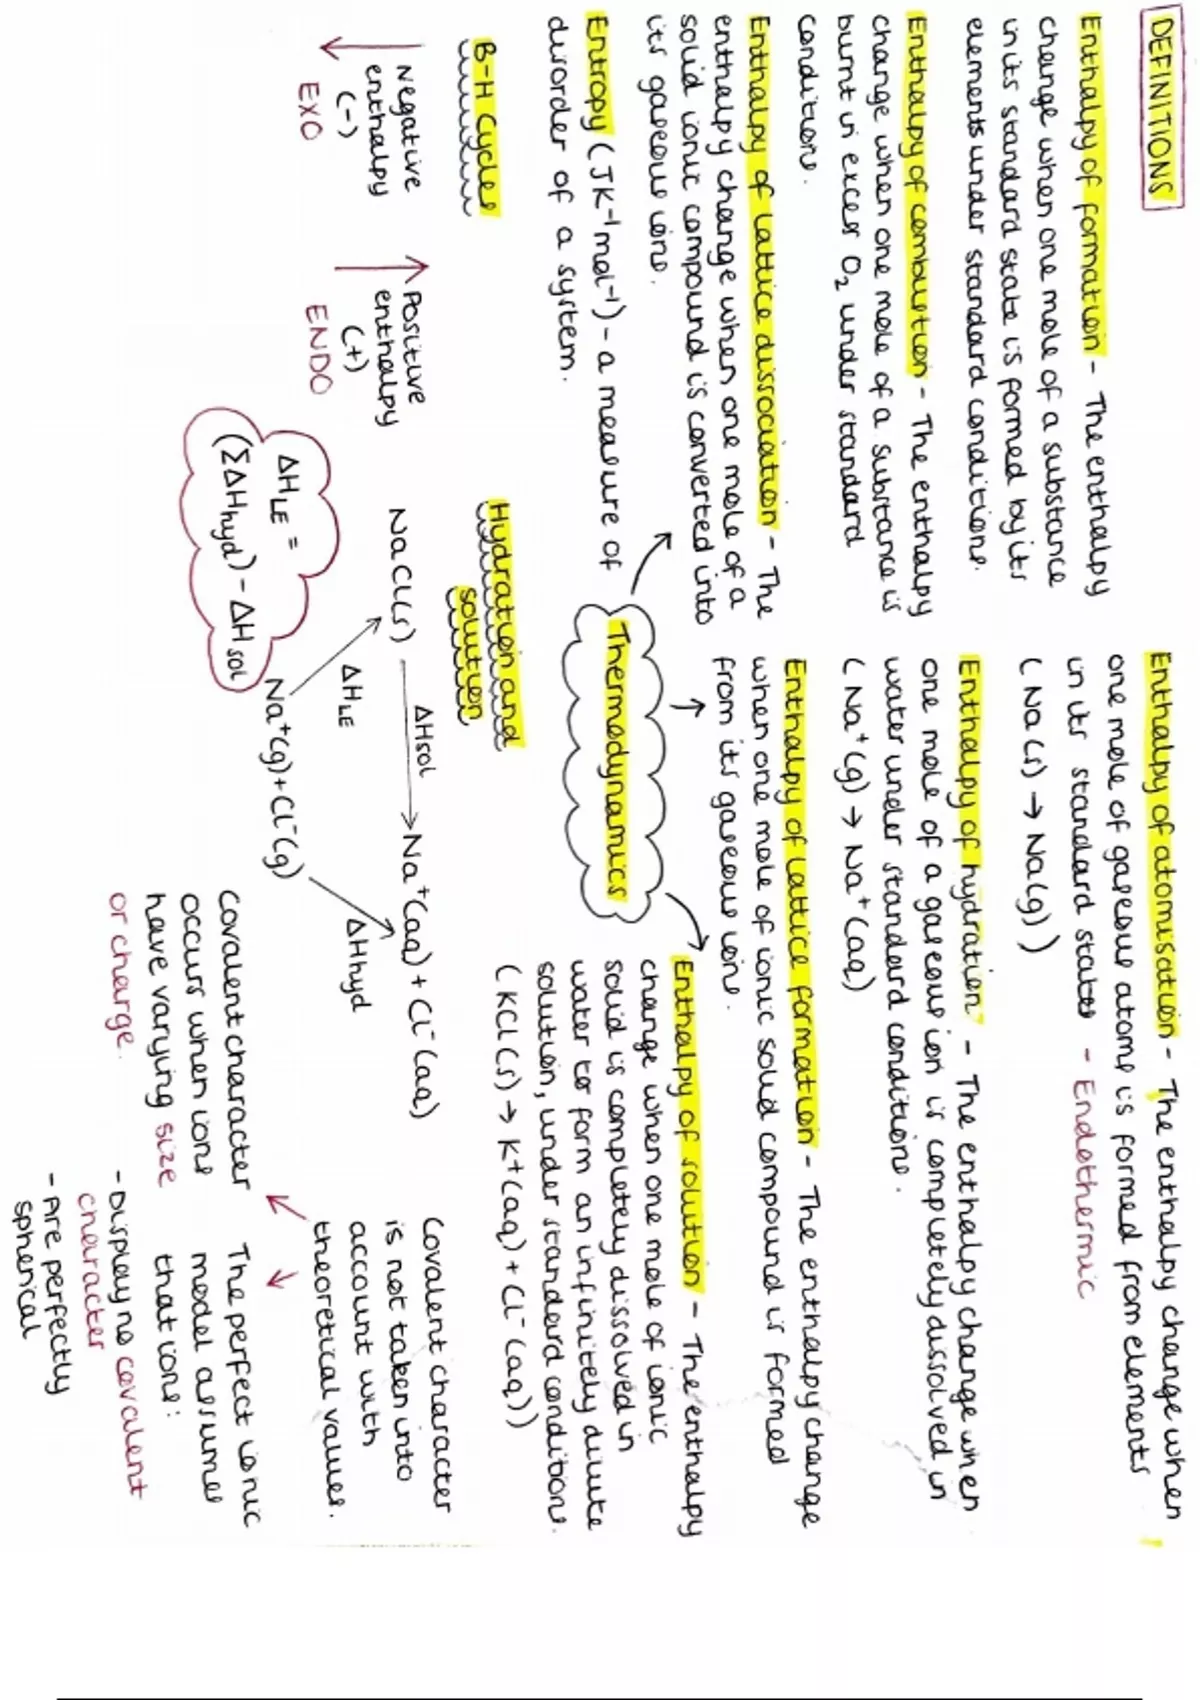 DEFINITIONS
Enthalpy of formation - The enthalpy
change when one mole of a substance
in its standard state is formed by its
elements under standard conditions.
Enthalpy of combustion - The enthalpy
change when one mole of a substance is
burnt in excess O₂ under standard
conditions.
Enthalpy of lattice dissociation - The
enthalpy change when one mole of a
solid ionic compound is converted into
its gaseous ions.
Entropy (JK⁻¹mol⁻¹) - a measure of
disorder of a system.
Enthalpy of atomisation - The enthalpy change when
one mole of gaseous atoms is formed from elements
in its standard states - Endothermic
(Na(s) → Na(g))
Enthalpy of hydration - The enthalpy change when
one mole of a gaseous ion is completely dissolved in
water under standard conditions.
(Na⁺(g) → Na⁺(aq)
Enthalpy of lattice formation - The enthalpy change
when one mole of ionic solid compound is formed
from its gaseous ions.
Thermodynamics
Enthalpy of solution - The enthalpy
change when one mole of ionic
solid is completely dissolved in
water to form an infinitely dilute
solution, under standard conditions.
(KCl(s) → K⁺(aq) + Cl⁻(aq))
B-H Cycles
Negative
enthalpy
(-)
EXO
Positive
enthalpy
(+)
ENDO
Hydration and
solution
NaCl(s)
ΔHsol
Na⁺(aq) + Cl⁻(aq)
ΔH LE
ΔHhyd
Na⁺(g) + Cl⁻(g)
ΔH LE =
(ΣΔHhyd) - ΔHsol
Covalent character
is not taken into
account with
theoretical values.
Covalent character
occurs when ions
have varying size
or charge.
The perfect ionic
model assumes
that ions:
- Display no covalent
character
- Are perfectly
spherical